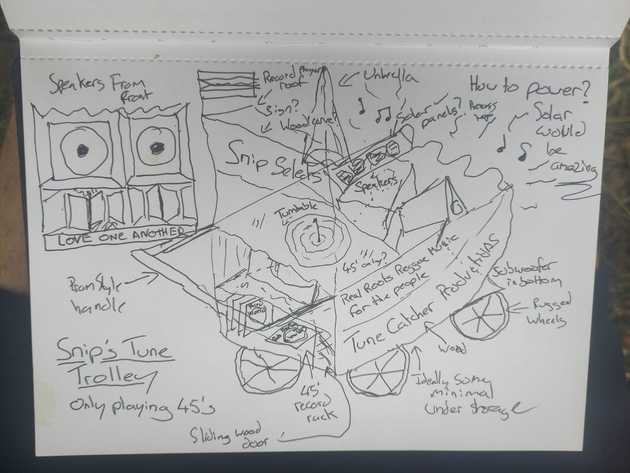 Speakers From
front
LOVE ONE ANOTHER
Record
roof
Sign?
Woodcarve
Snip Selects
Umbrella
Solar
panels?
How to power?
Solar
would
be
amazing
Speakers
Turntable
45's
only?
Real Roots Reggae Music
for the people
Tune Catcher Productions
Subwoofer
in bottom
Rugged
Wheels
Wood
Ideally some
minimal
under storage
Pram style
handle
45'
record
rack
Sliding wood
door
Snip's Tune
Trolley
Only playing 45's